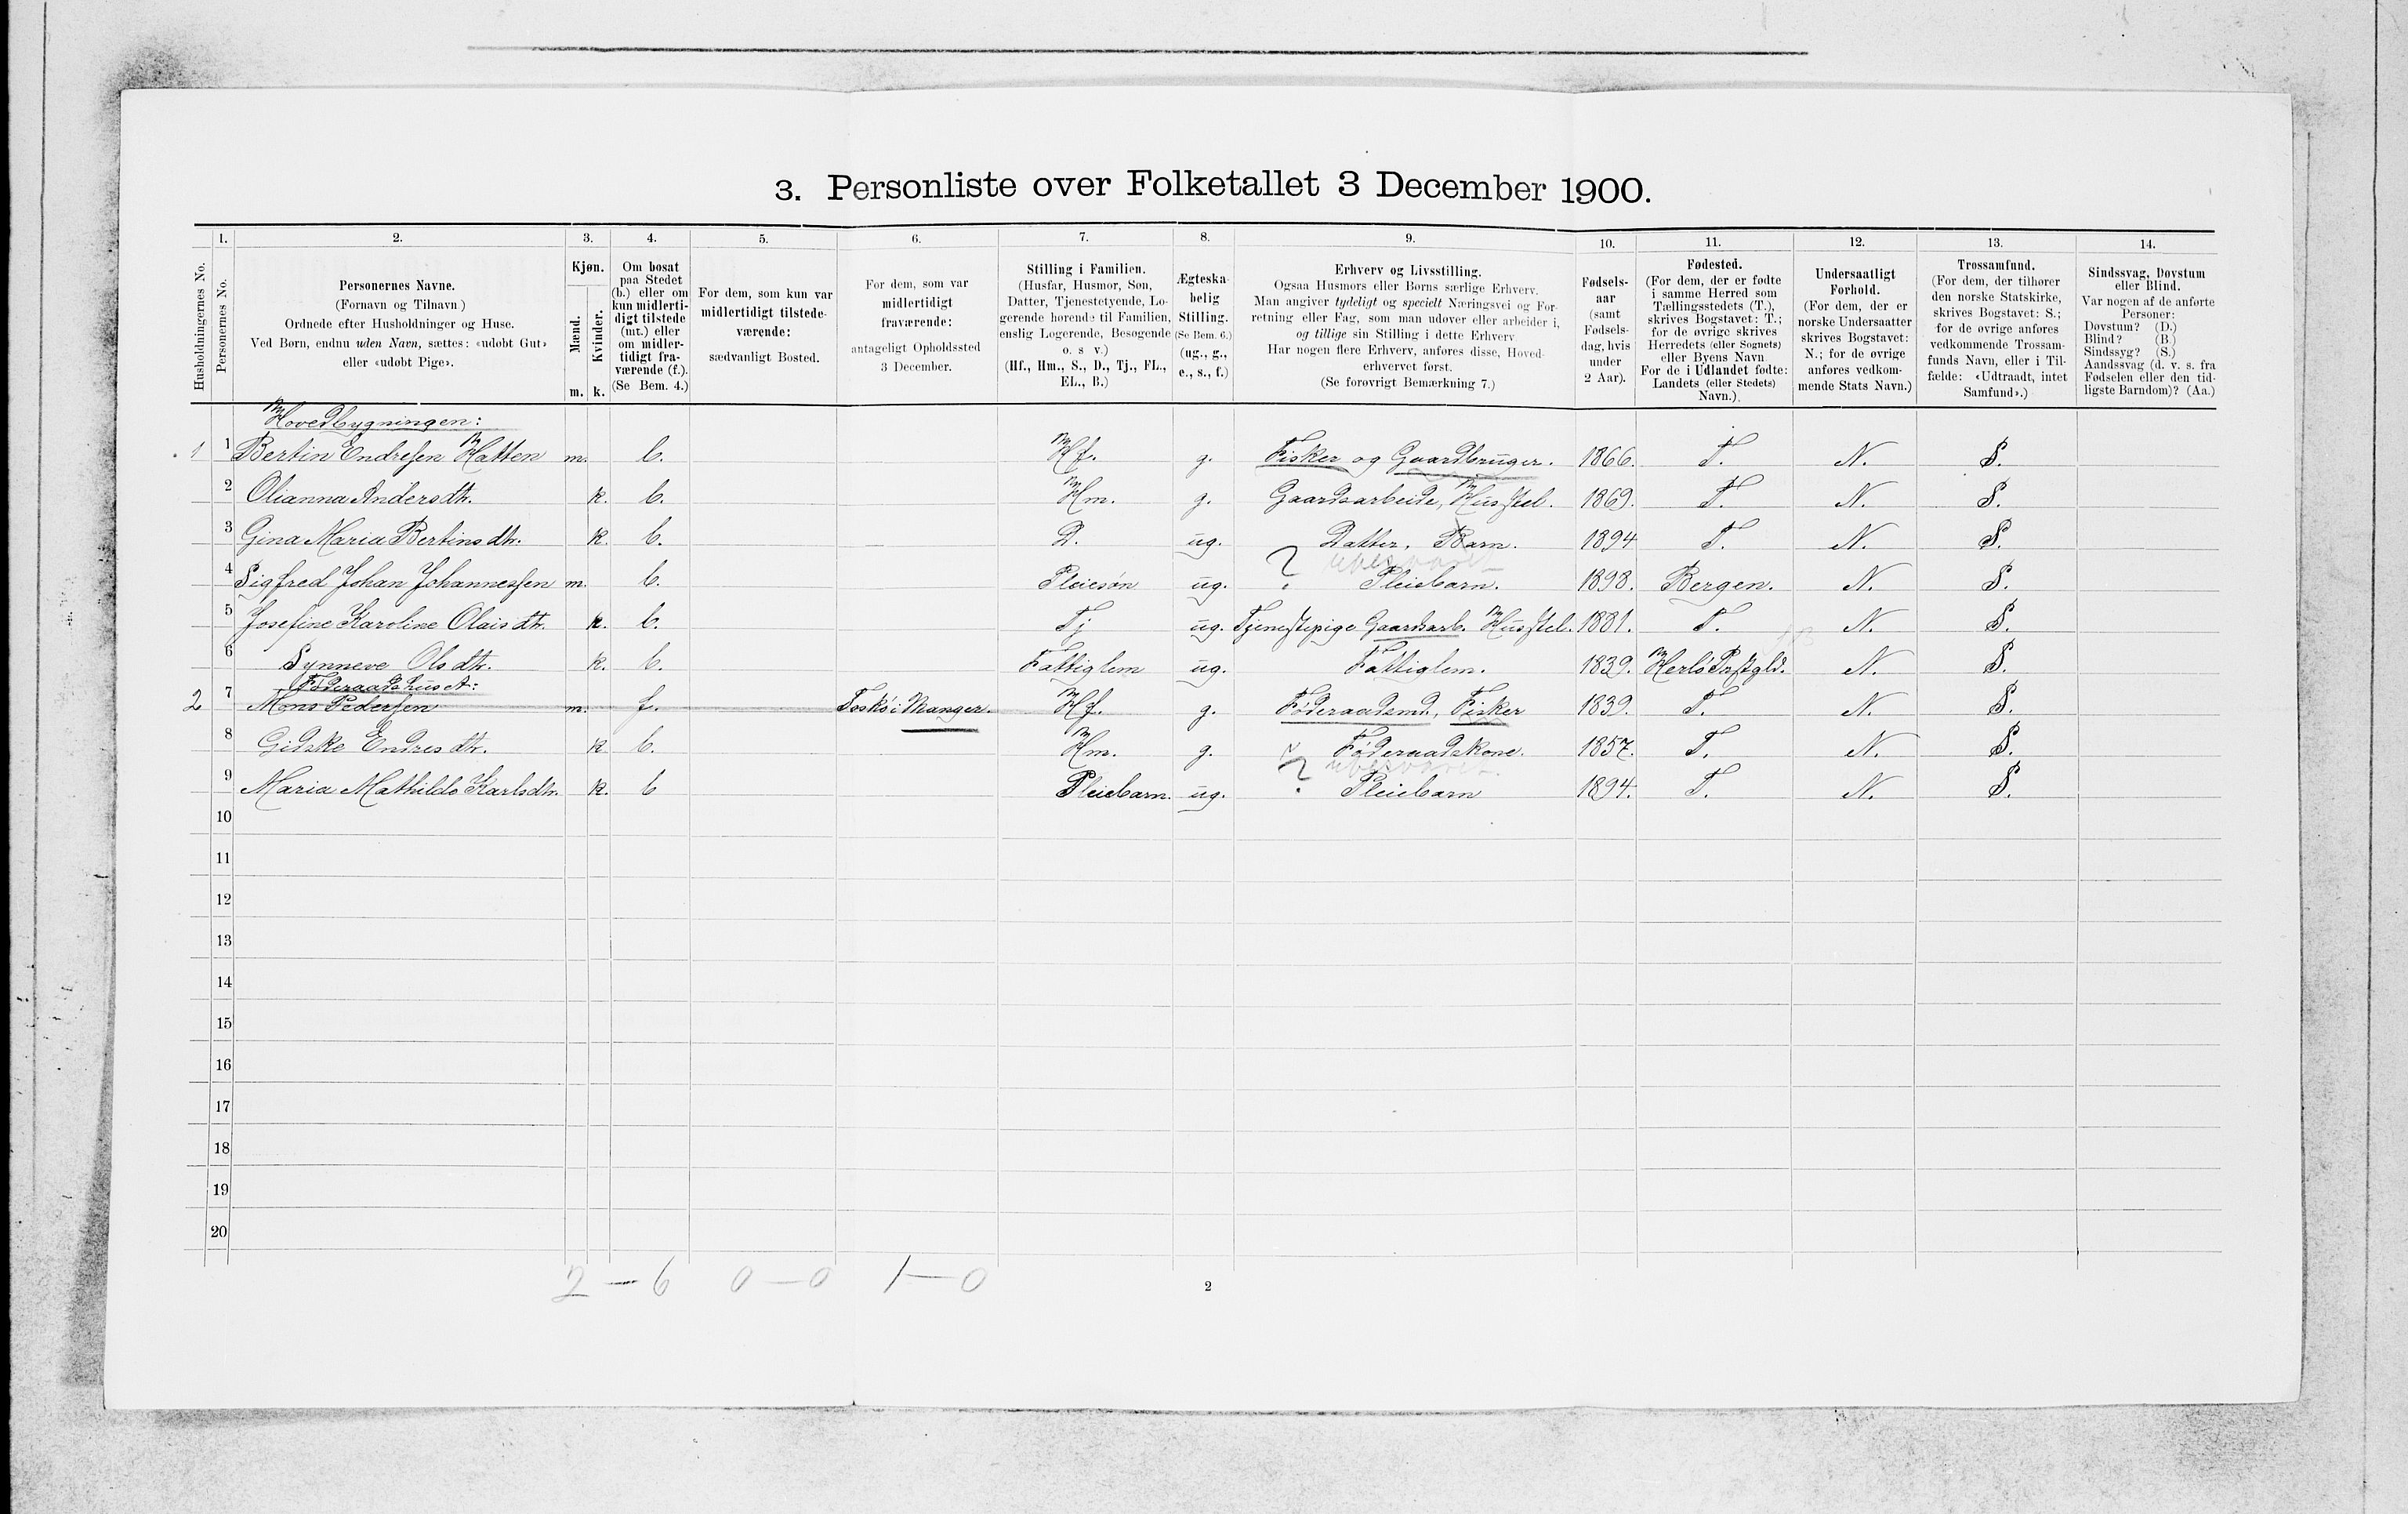 3. Personliste over Folketallet 3 December 1900.
1. 2. 3. 4. 5. 6. 7. 8. 9. 10. 11. 12. 13. 14.
Husholdningernes No.
Personernes No.
Personernes Navne.
(Fornavn og Tilnavn.)
Ordnede efter Husholdninger og Huse.
Ved Børn, endnu uden Navn, sættes: «udøbt Gut»
eller «udøbt Pige».
Kjøn.
Mænd.
Kvinder.
m. k.
Om bosat
paa Stedet
(b.) eller om
kun midlerti-
digt tilstede
(mt.) eller
om midler-
tidigt fra-
værende (f.).
(Se Bem. 4.)
For dem, som kun var
midlertidigt tilstede-
værende:
sædvanligt Bosted.
For dem, som var
midlertidigt
fraværende:
antageligt Opholdssted
3 December.
Stilling i Familien.
(Husfar, Husmor, Søn,
Datter, Tjenestetyende, Lo-
gerende hørende til Familien,
enslig Logerende, Besøgende
o. s. v.)
(Hf., Hm., S., D., Tj., FL.,
EL., B.)
Ægteska-
belig
Stilling.
(Se Bem. 6.)
(ug., g.,
e., s., f.)
Erhverv og Livsstilling.
Ogsaa Husmors eller Børns særlige Erhverv.
Man angiver tydeligt og specielt Næringsvei og For-
retning eller Fag, som man udøver eller arbeider i,
og tillige sin Stilling i dette Erhverv.
Har nogen flere Erhverv, anføres disse, Hoved-
erhvervet først.
(Se forøvrigt Bemærkning 7.)
Fødsels-
aar
(samt
Fødsels-
dag, hvis
under
2 Aar).
Fødested.
(For dem, der er fødte
i samme Herred som
Tællingsstedets (T.),
skrives Bogstavet: T.;
for de øvrige skrives
Herredets (eller Sognets)
eller Byens Navn.
For de i Udlandet fødte:
Landets (eller Stedets)
Navn.)
Undersaatligt
Forhold.
(For dem, der er
norske Undersaatter
skrives Bogstavet:
N.; for de øvrige
anføres vedkom-
mende Stats Navn.)
Trossamfund.
(For dem, der tilhører
den norske Statskirke,
skrives Bogstavet: S.;
for de øvrige anføres
vedkommende Trossam-
funds Navn, eller i Til-
fælde: «Udtraadt, intet
Samfund».)
Sindssvag, Døvstum
eller Blind.
Var nogen af de anførte
Personer:
Døvstum? (D.)
Blind? (B.)
Sindssyg? (S.)
Aandssvag (d. v. s. fra
Fødselen eller den tid-
ligste Barndom)? (Aa.)
Hovedbygningen:
1 1 Bertin Endresen Hatten m. b. Hf. g. Fisker og Gaardbruger. 1866. T. N. S.
2 Olianna Andersdtr. k. b. Hm. g. Gaardsarbeide, Husstel. 1869. T. N. S.
3 Gina Maria Bertinsdtr. k. b. D. ug. Datter, Barn. 1894 T. N. S.
ubesvaret
4 Sigfred Johan Johannessen m. b. Pleiesøn ug. ? Pleiebarn. 1898. Bergen. N. S.
5 Josefine Karoline Olaisdtr. k. b. Tj ug. Tjenestepige Gaardsarb. Husstel. 1881. T. N. S.
6 Synneve Olsdtr. k. b. Fattiglem ug. Fattiglem. 1839. Herlø Præstgld. N. S.
Føderaadshuset:
2 7 Mons Pedersen m. f. Toskø i Manger. Hf. g. Føderaadsmd., Fisker 1839. T. N. S.
8 Gidske Endresdtr. k. b. Hm. g. Føderaadskone. 1857. T. N. S.
ubesvaret.
9 Maria Mathilde Karlsdtr. k. b Pleiebarn. ug. ? Pleiebarn 1894. T. N. S.
10
11
12
13
14
15
16
17
18
19
20
2 — 6 0 — 0 1 — 0
2